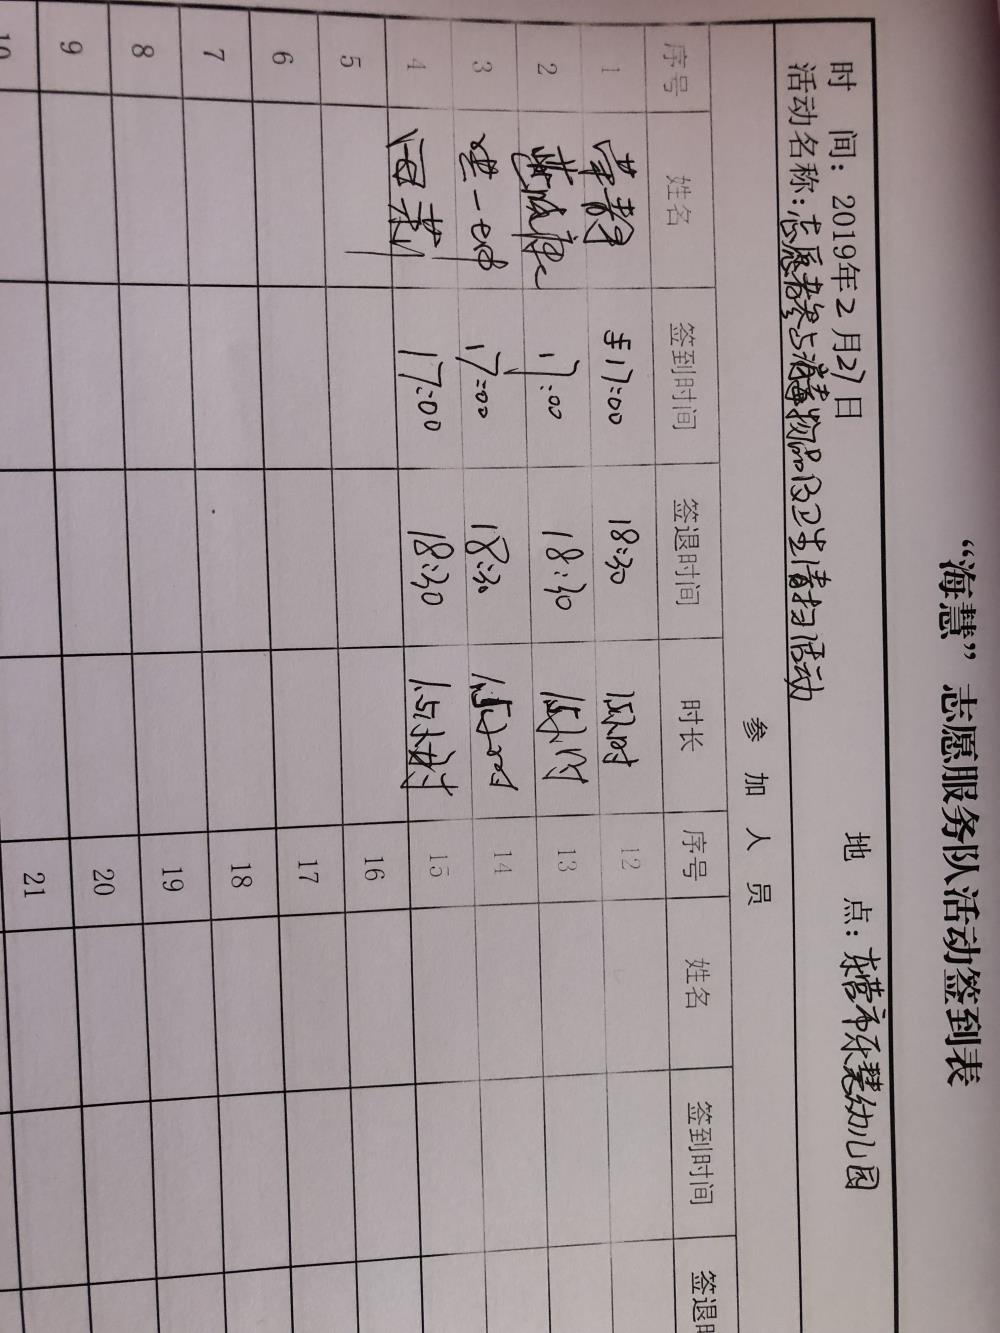 “海慧”志愿服务队活动签到表
时 间：2019年2月27日 地 点：东营市乐慧幼儿园
活动名称：志愿者参与消毒物品及卫生清扫活动
参 加 人 员
序号 姓名 签到时间 签退时间 时长 序号 姓名 签到时间 签退时
1 17:00 18:30 1.5小时 12
2 17:00 18:30 1.5小时 13
3 17:00 18:30 1.5小时 14
4 17:00 18:30 1.5小时 15
5 16
6 17
7 18
8 19
9 20
10 21